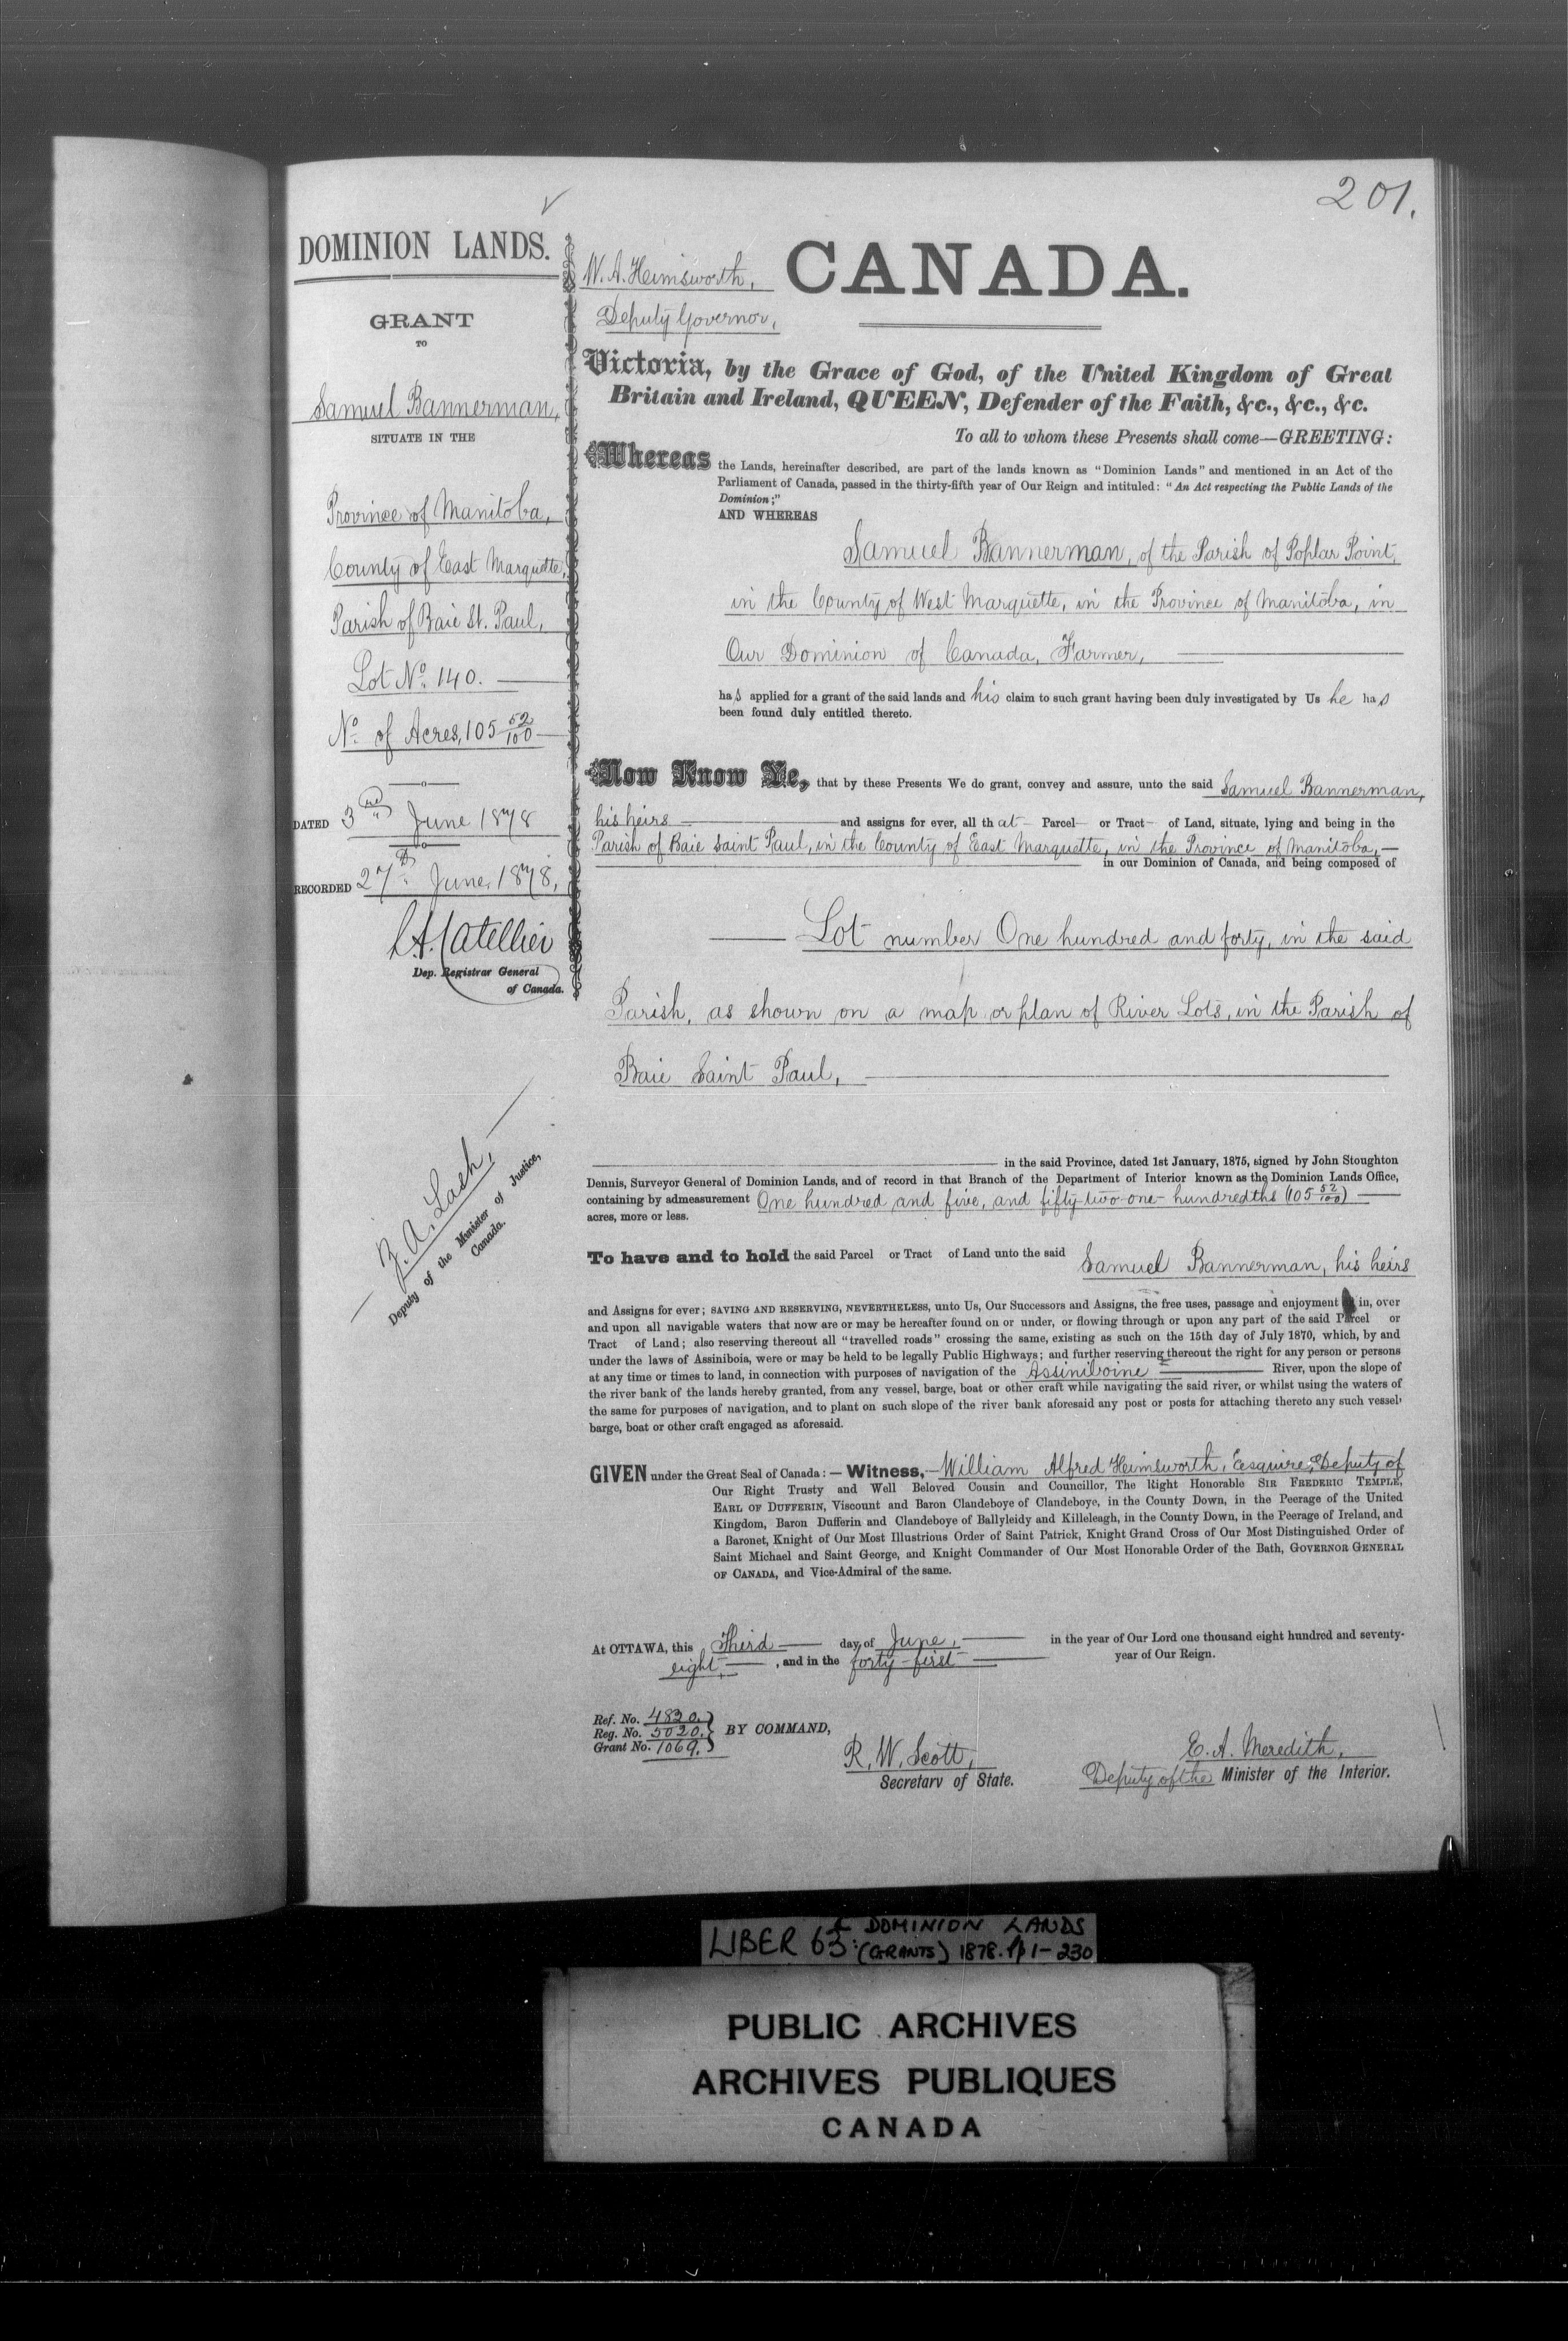 201.
DOMINION LANDS.
GRANT
TO
Samuel Bannerman,
SITUATE IN THE
Province of Manitoba,
County of East Marquette,
Parish of Baie St. Paul,
Lot No. 140.
No. of Acres, 105 52/100
DATED 3rd June 1878
RECORDED 27th June, 1878,
L.A. Catellier
Dep. Registrar General
of Canada.
Z. A. Lash,
Deputy of the Minister of Justice,
Canada.
W. A. Heimsworth,
Deputy Governor,
CANADA.
Victoria, by the Grace of God, of the United Kingdom of Great
Britain and Ireland, QUEEN, Defender of the Faith, &c., &c., &c.
To all to whom these Presents shall come—GREETING:
Whereas the Lands, hereinafter described, are part of the lands known as "Dominion Lands" and mentioned in an Act of the
Parliament of Canada, passed in the thirty-fifth year of Our Reign and intituled: "An Act respecting the Public Lands of the
Dominion;"
AND WHEREAS
Samuel Bannerman, of the Parish of Poplar Point,
in the County of West Marquette, in the Province of Manitoba, in
Our Dominion of Canada, Farmer,
has applied for a grant of the said lands and his claim to such grant having been duly investigated by Us he has
been found duly entitled thereto.
Now Know Ye, that by these Presents We do grant, convey and assure, unto the said Samuel Bannerman,
his heirs — and assigns for ever, all that Parcel or Tract of Land, situate, lying and being in the
Parish of Baie Saint Paul, in the County of East Marquette, in the Province of Manitoba,—
in our Dominion of Canada, and being composed of
Lot number One hundred and forty, in the said
Parish, as shown on a map or plan of River Lots, in the Parish of
Baie Saint Paul,
in the said Province, dated 1st January, 1875, signed by John Stoughton
Dennis, Surveyor General of Dominion Lands, and of record in that Branch of the Department of Interior known as the Dominion Lands Office,
containing by admeasurement One hundred and five, and fifty-two one-hundredths (105 52/100)
acres, more or less.
To have and to hold the said Parcel or Tract of Land unto the said Samuel Bannerman, his heirs
and Assigns for ever; SAVING AND RESERVING, NEVERTHELESS, unto Us, Our Successors and Assigns, the free uses, passage and enjoyment in, over
and upon all navigable waters that now are or may be hereafter found on or under, or flowing through or upon any part of the said Parcel or
Tract of Land; also reserving thereout all "travelled roads" crossing the same, existing as such on the 15th day of July 1870, which, by and
under the laws of Assiniboia, were or may be held to be legally Public Highways; and further reserving thereout the right for any person or persons
at any time or times to land, in connection with purposes of navigation of the Assiniboine River, upon the slope of
the river bank of the lands hereby granted, from any vessel, barge, boat or other craft while navigating the said river, or whilst using the waters of
the same for purposes of navigation, and to plant on such slope of the river bank aforesaid any post or posts for attaching thereto any such vessel,
barge, boat or other craft engaged as aforesaid.
GIVEN under the Great Seal of Canada:—Witness,—William Alfred Heimsworth, Esquire, Deputy of
Our Right Trusty and Well Beloved Cousin and Councillor, The Right Honorable SIR FREDERIC TEMPLE,
EARL OF DUFFERIN, Viscount and Baron Clandeboye of Clandeboye, in the County Down, in the Peerage of the United
Kingdom, Baron Dufferin and Clandeboye of Ballyleidy and Killeleagh, in the County Down, in the Peerage of Ireland, and
a Baronet, Knight of Our Most Illustrious Order of Saint Patrick, Knight Grand Cross of Our Most Distinguished Order of
Saint Michael and Saint George, and Knight Commander of Our Most Honorable Order of the Bath, GOVERNOR GENERAL
OF CANADA, and Vice-Admiral of the same.
At OTTAWA, this Third day of June, in the year of Our Lord one thousand eight hundred and seventy-
eight, , and in the forty-first year of Our Reign.
Ref. No. 4820.
Reg. No. 5020.
Grant No. 1069.
BY COMMAND,
R. W. Scott,
Secretary of State.
E. A. Meredith,
Deputy of the Minister of the Interior.
LIBER 63: DOMINION LANDS
(GRANTS) 1878. pp 1-230
PUBLIC ARCHIVES
ARCHIVES PUBLIQUES
CANADA